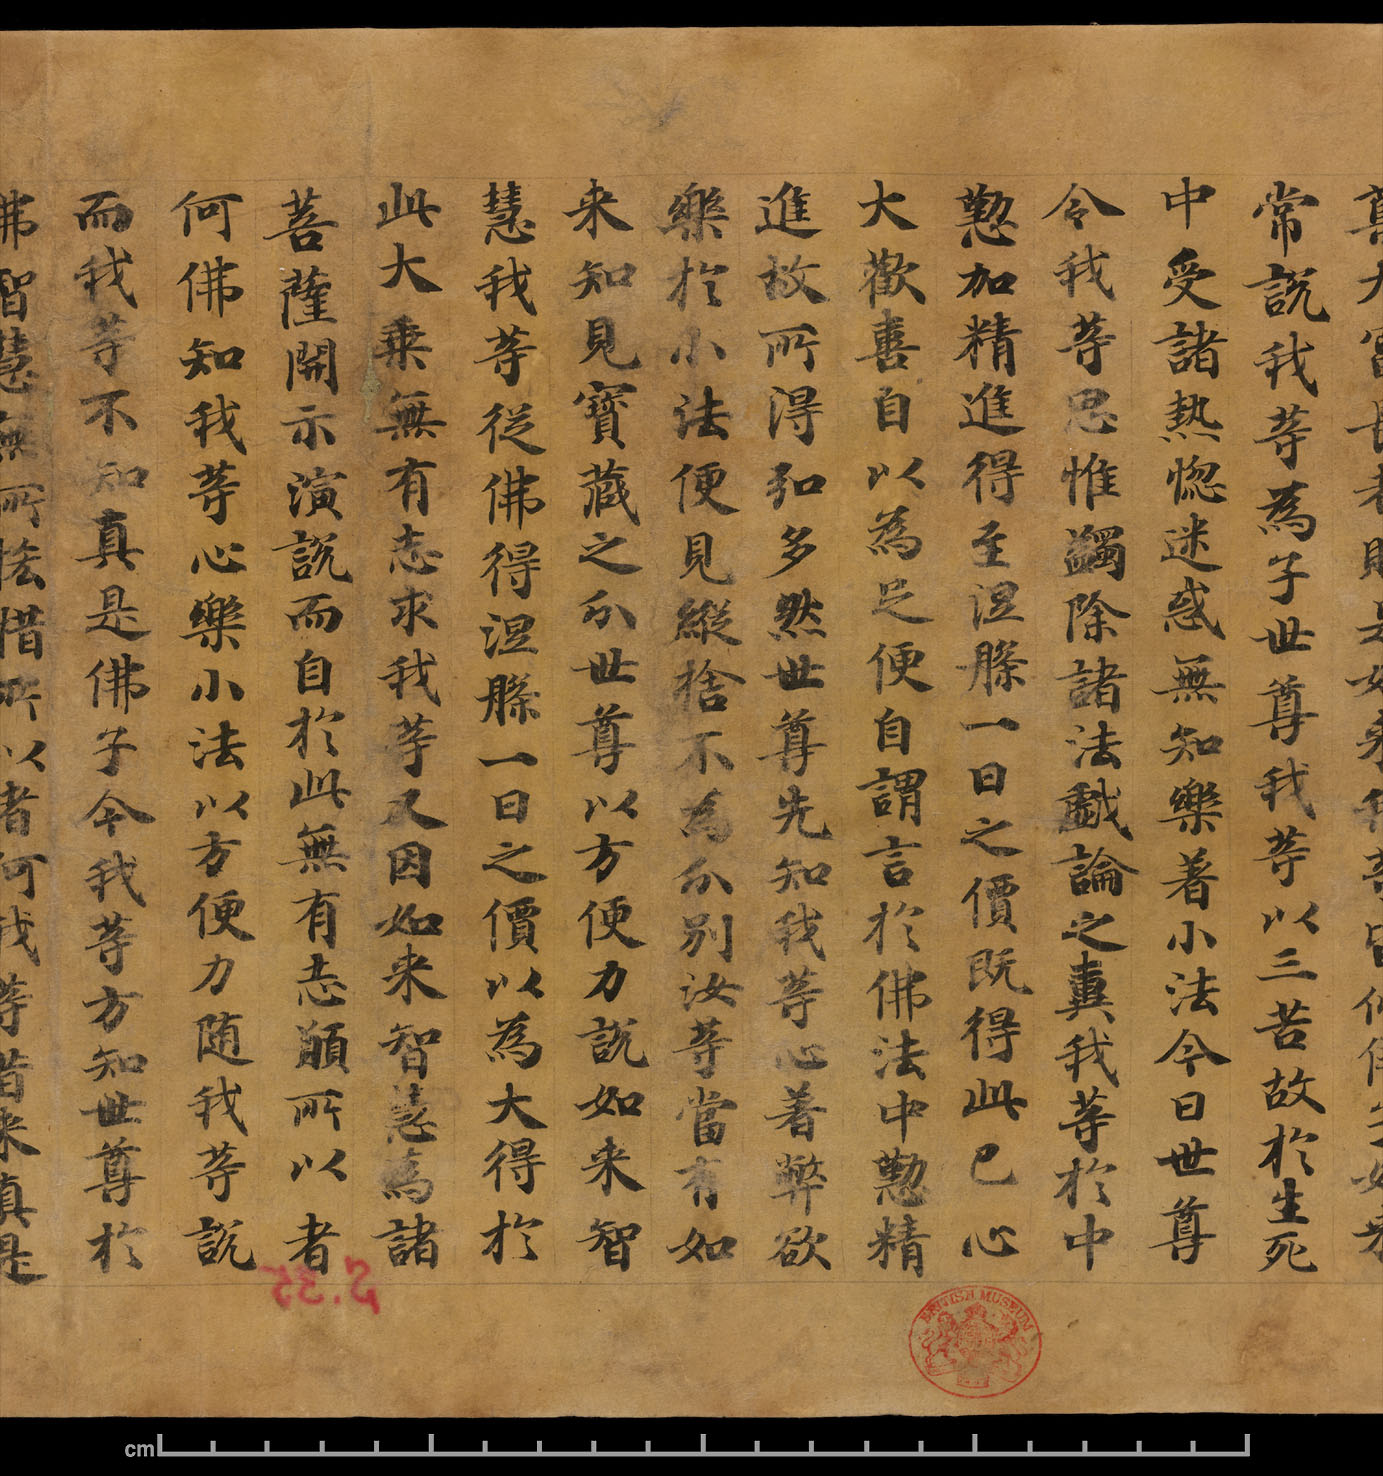 尊大富長者則是如来我等皆似佛子如来
常說我等為子世尊我等以三苦故於生死
中受諸熱惚迷惑無知樂著小法今日世尊
令我等思惟蠲除諸法戲論之糞我等於中
懃加精進得至涅槃一日之價既得此已心
大歡喜自以為足便自謂言於佛法中懃精
進故所得弘多然世尊先知我等心著弊欲
樂於小法便見縱捨不為分別汝等當有如
来知見寶藏之分世尊以方便力說如来智
慧我等從佛得涅槃一日之價以為大得於
此大乗無有志求我等又因如来智慧為諸
菩薩開示演說而自於此無有志願所以者
何佛知我等心樂小法以方便力随我等說
而我等不知真是佛子今我等方知世尊於
佛智慧無所悋惜所以者何我等昔来真是
BRITISH MUSEUM
cm